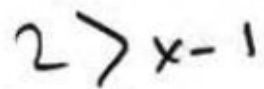 2 > x - 1